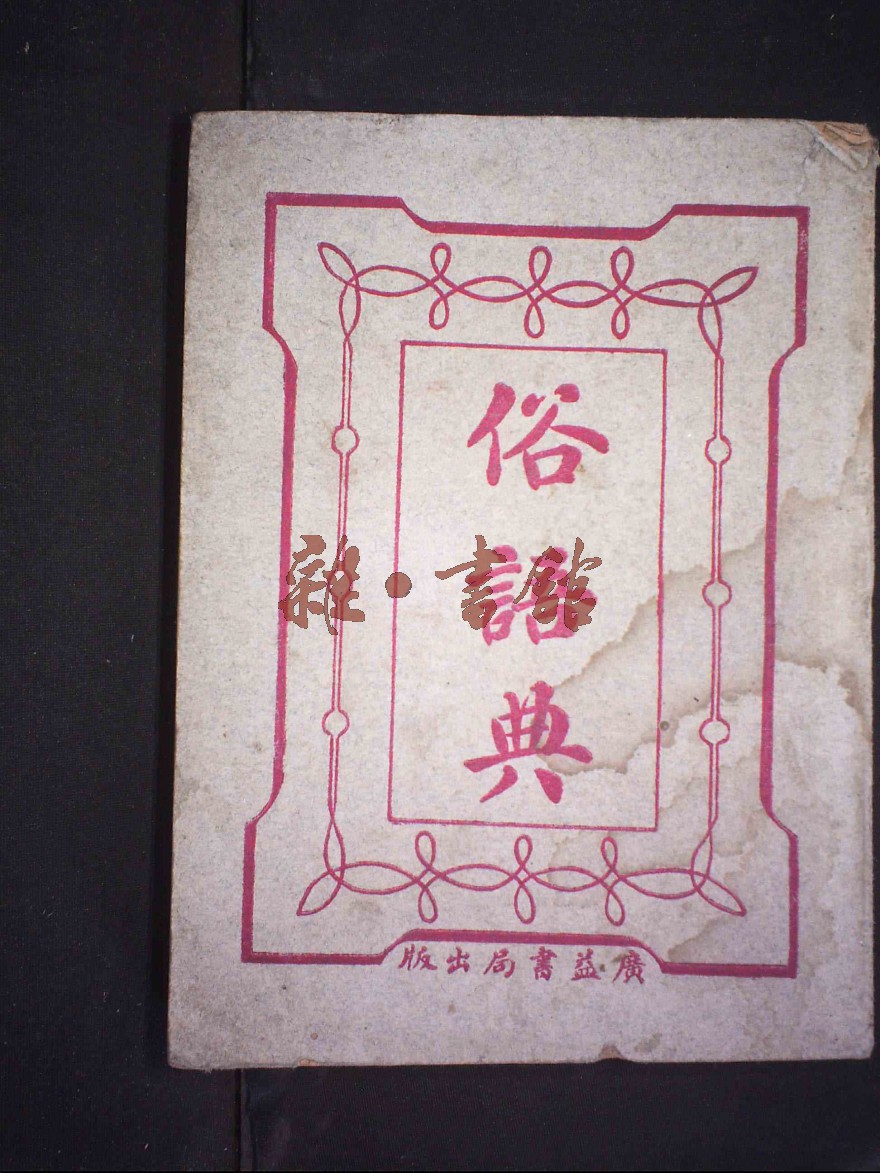 俗語典
雜·書館
廣益書局出版